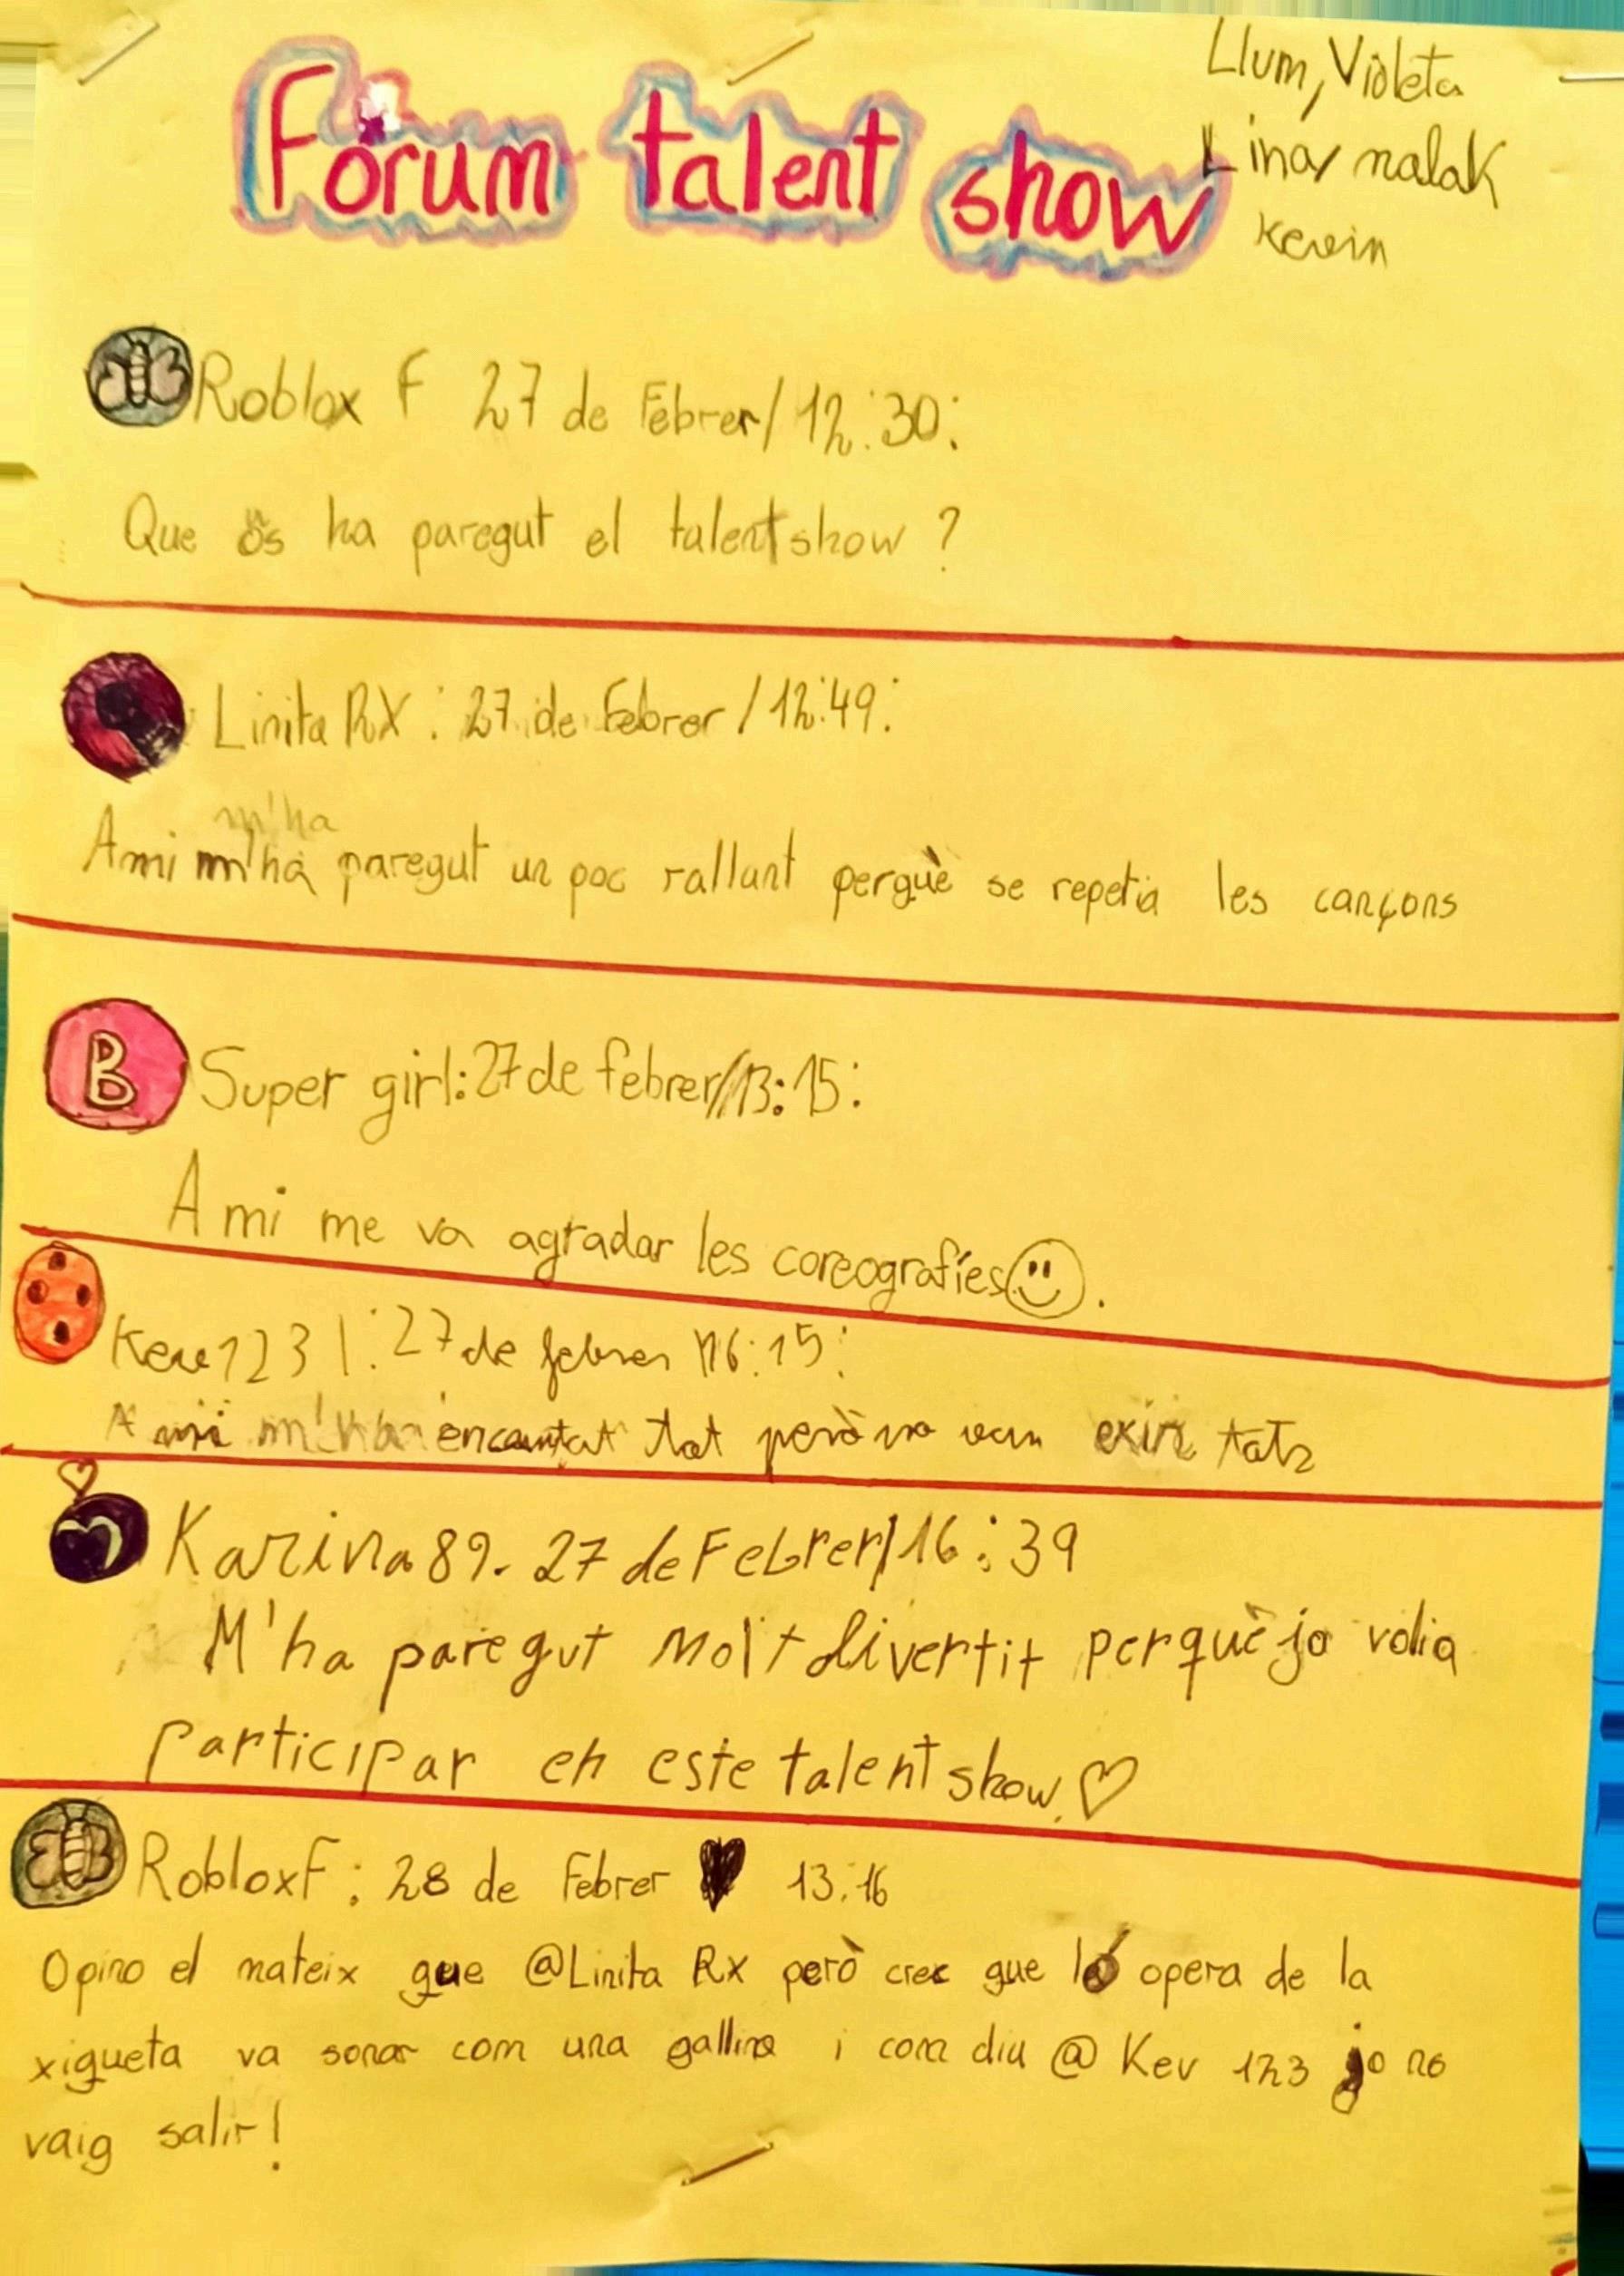 Llum, Violeta
Fórum talent show
Lina, malak
Kevin
Roblox F 27 de Febrer / 12:30:
Que os ha paregut el talent show?
Linita RX: 27 de Febrer / 12:49:
m'ha
A mi m'ha paregut un poc rallant perquè se repetia les cançons
B
Super girl: 27 de febrer / 13:15:
A mi me va agradar les coreografíes.
Kev123: 27 de febrer / 16:15:
A mi m'ha encantat tot però no van exir tots
Karina89. 27 de Febrer / 16:39
M'ha paregut molt divertit perquè jo volia
participar en este talent show.
RobloxF: 28 de Febrer 13:16
Opino el mateix que @Linita Rx però crec que opera de la
xiqueta va sonar com una gallina i com diu @ Kev 123 jo no
vaig salir!